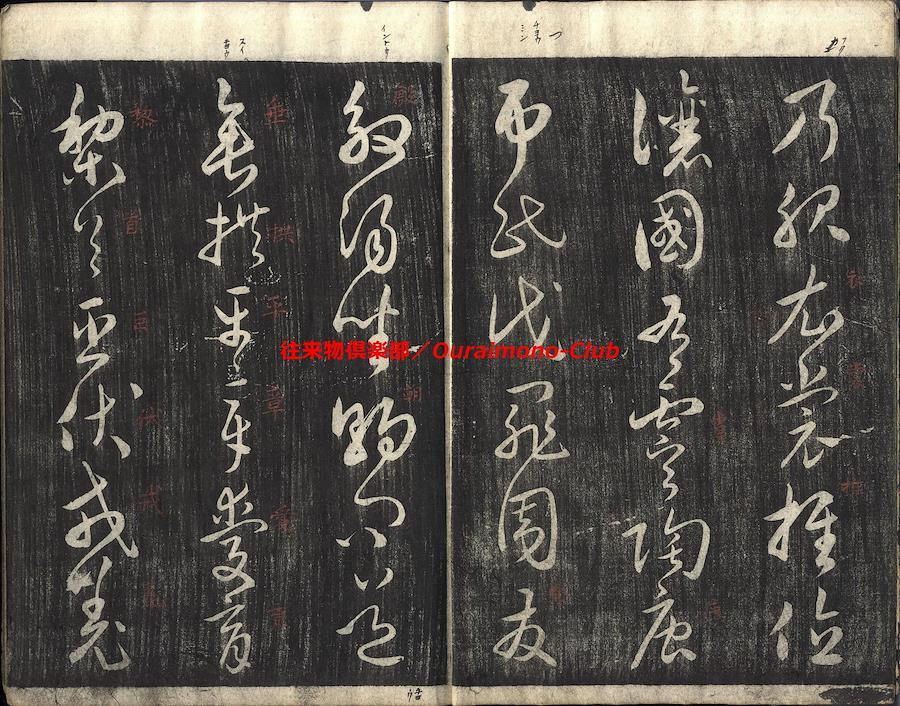 乃服衣裳推位
讓國有虞陶唐
弔民伐罪周發
殷湯坐朝問道
垂拱平章愛育
黎首臣伏戎羌
往来物倶楽部／Ouraimono-Club